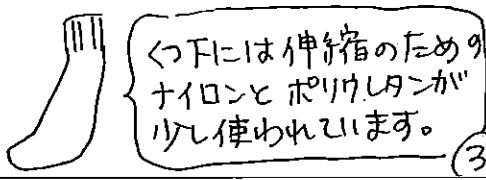 くつ下には伸縮のための
ナイロンとポリウレタンが
少し使われています。
3